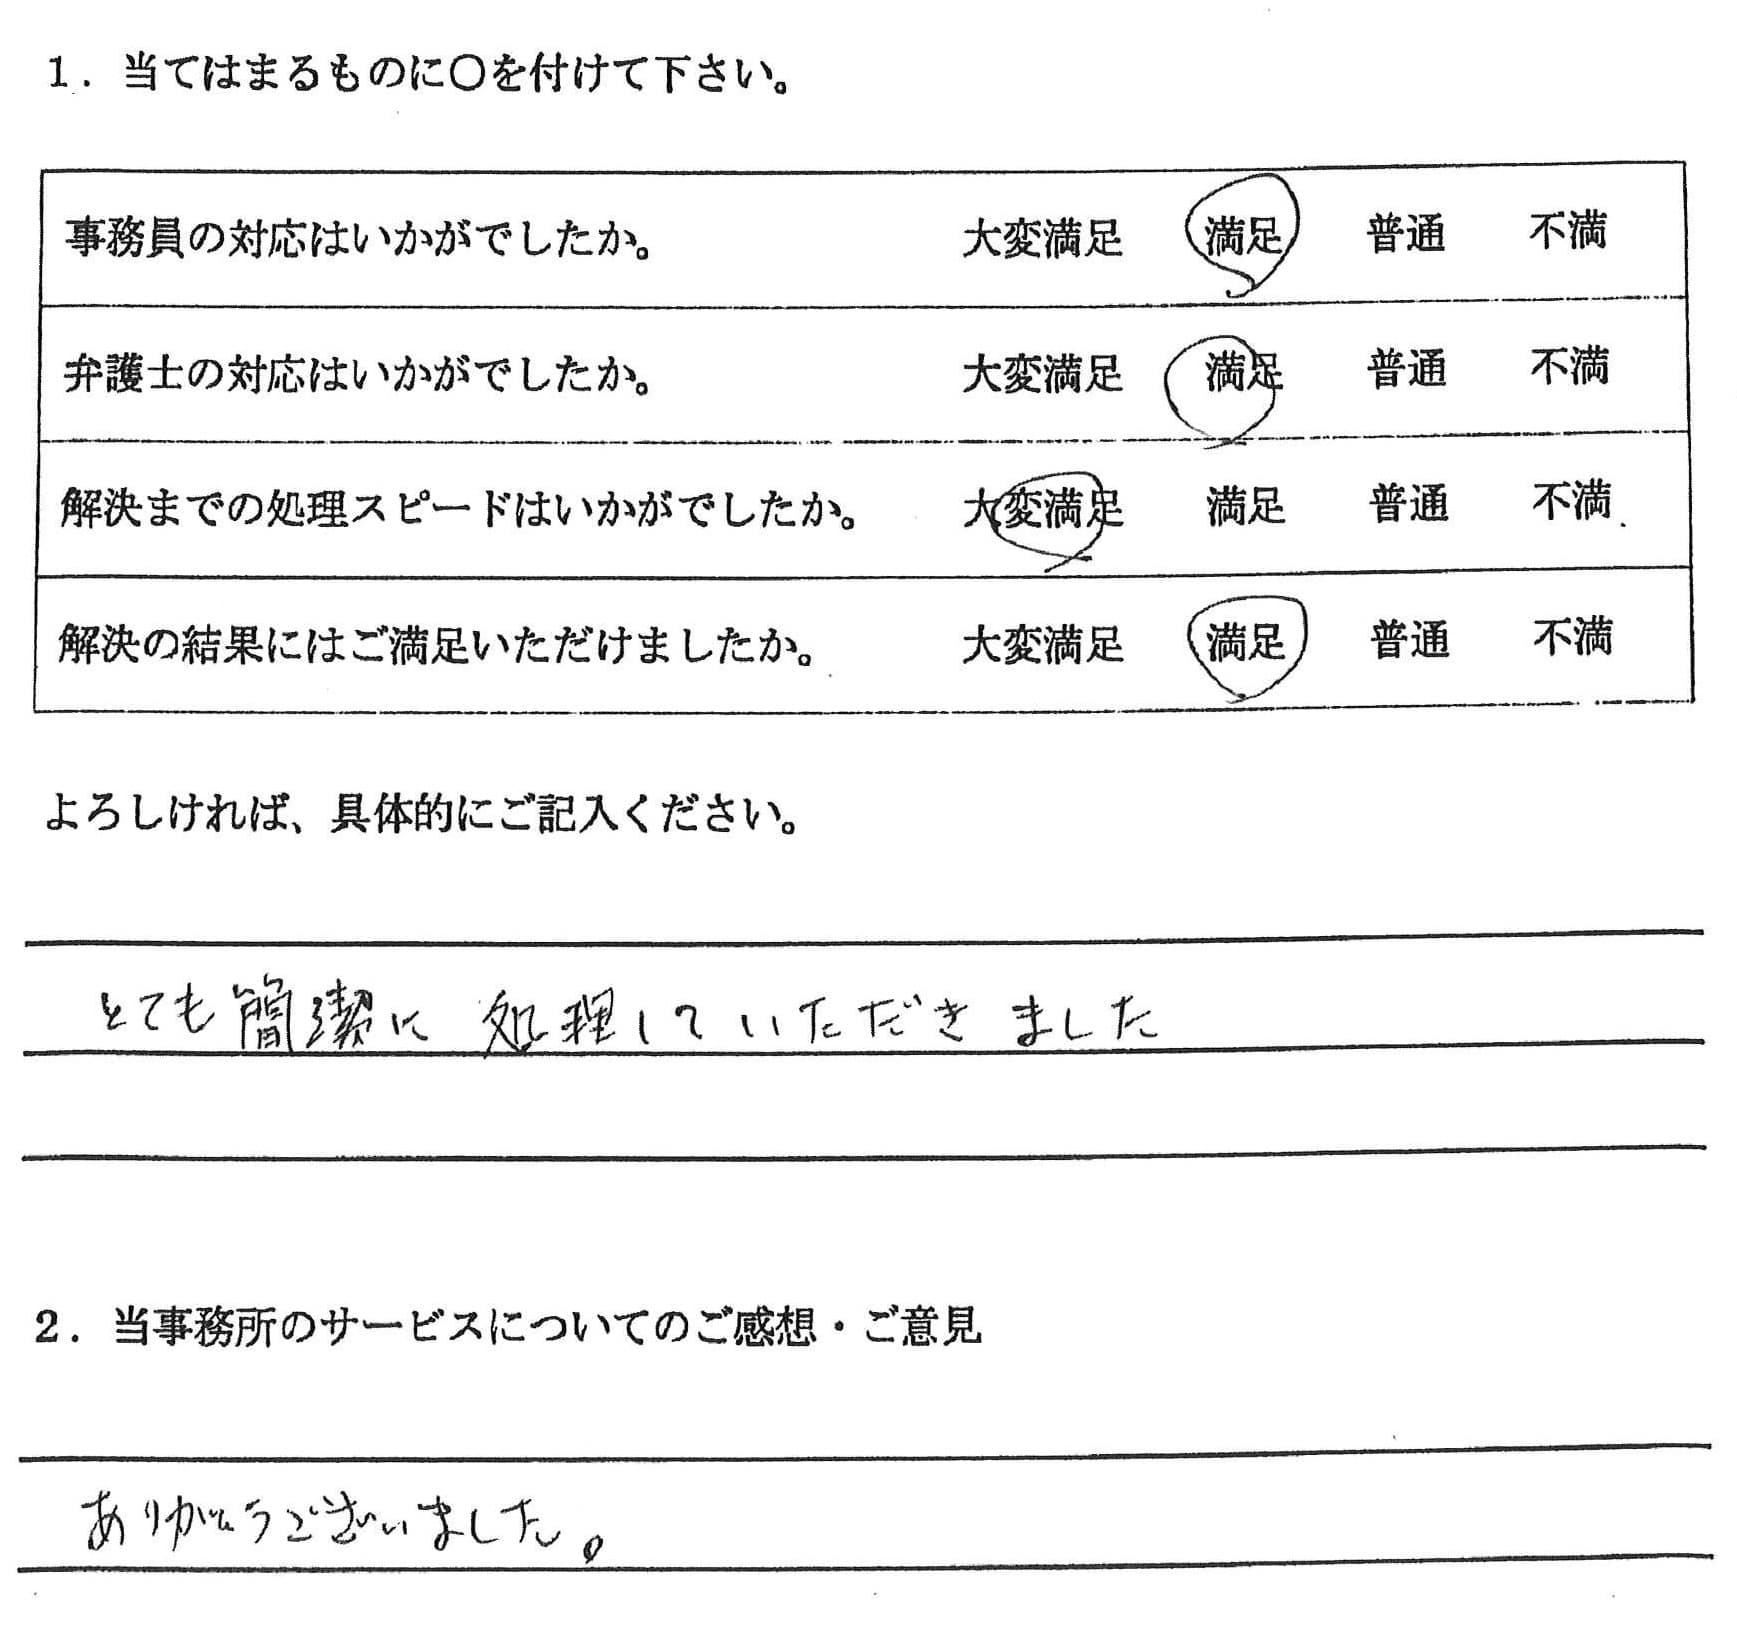 1．当てはまるものに〇を付けて下さい。
事務員の対応はいかがでしたか。 大変満足 満足 普通 不満
弁護士の対応はいかがでしたか。 大変満足 満足 普通 不満
解決までの処理スピードはいかがでしたか。 大変満足 満足 普通 不満
解決の結果にはご満足いただけましたか。 大変満足 満足 普通 不満
よろしければ、具体的にご記入ください。
とても簡潔に処理していただきました
2．当事務所のサービスについてのご感想・ご意見
ありがとうございました。